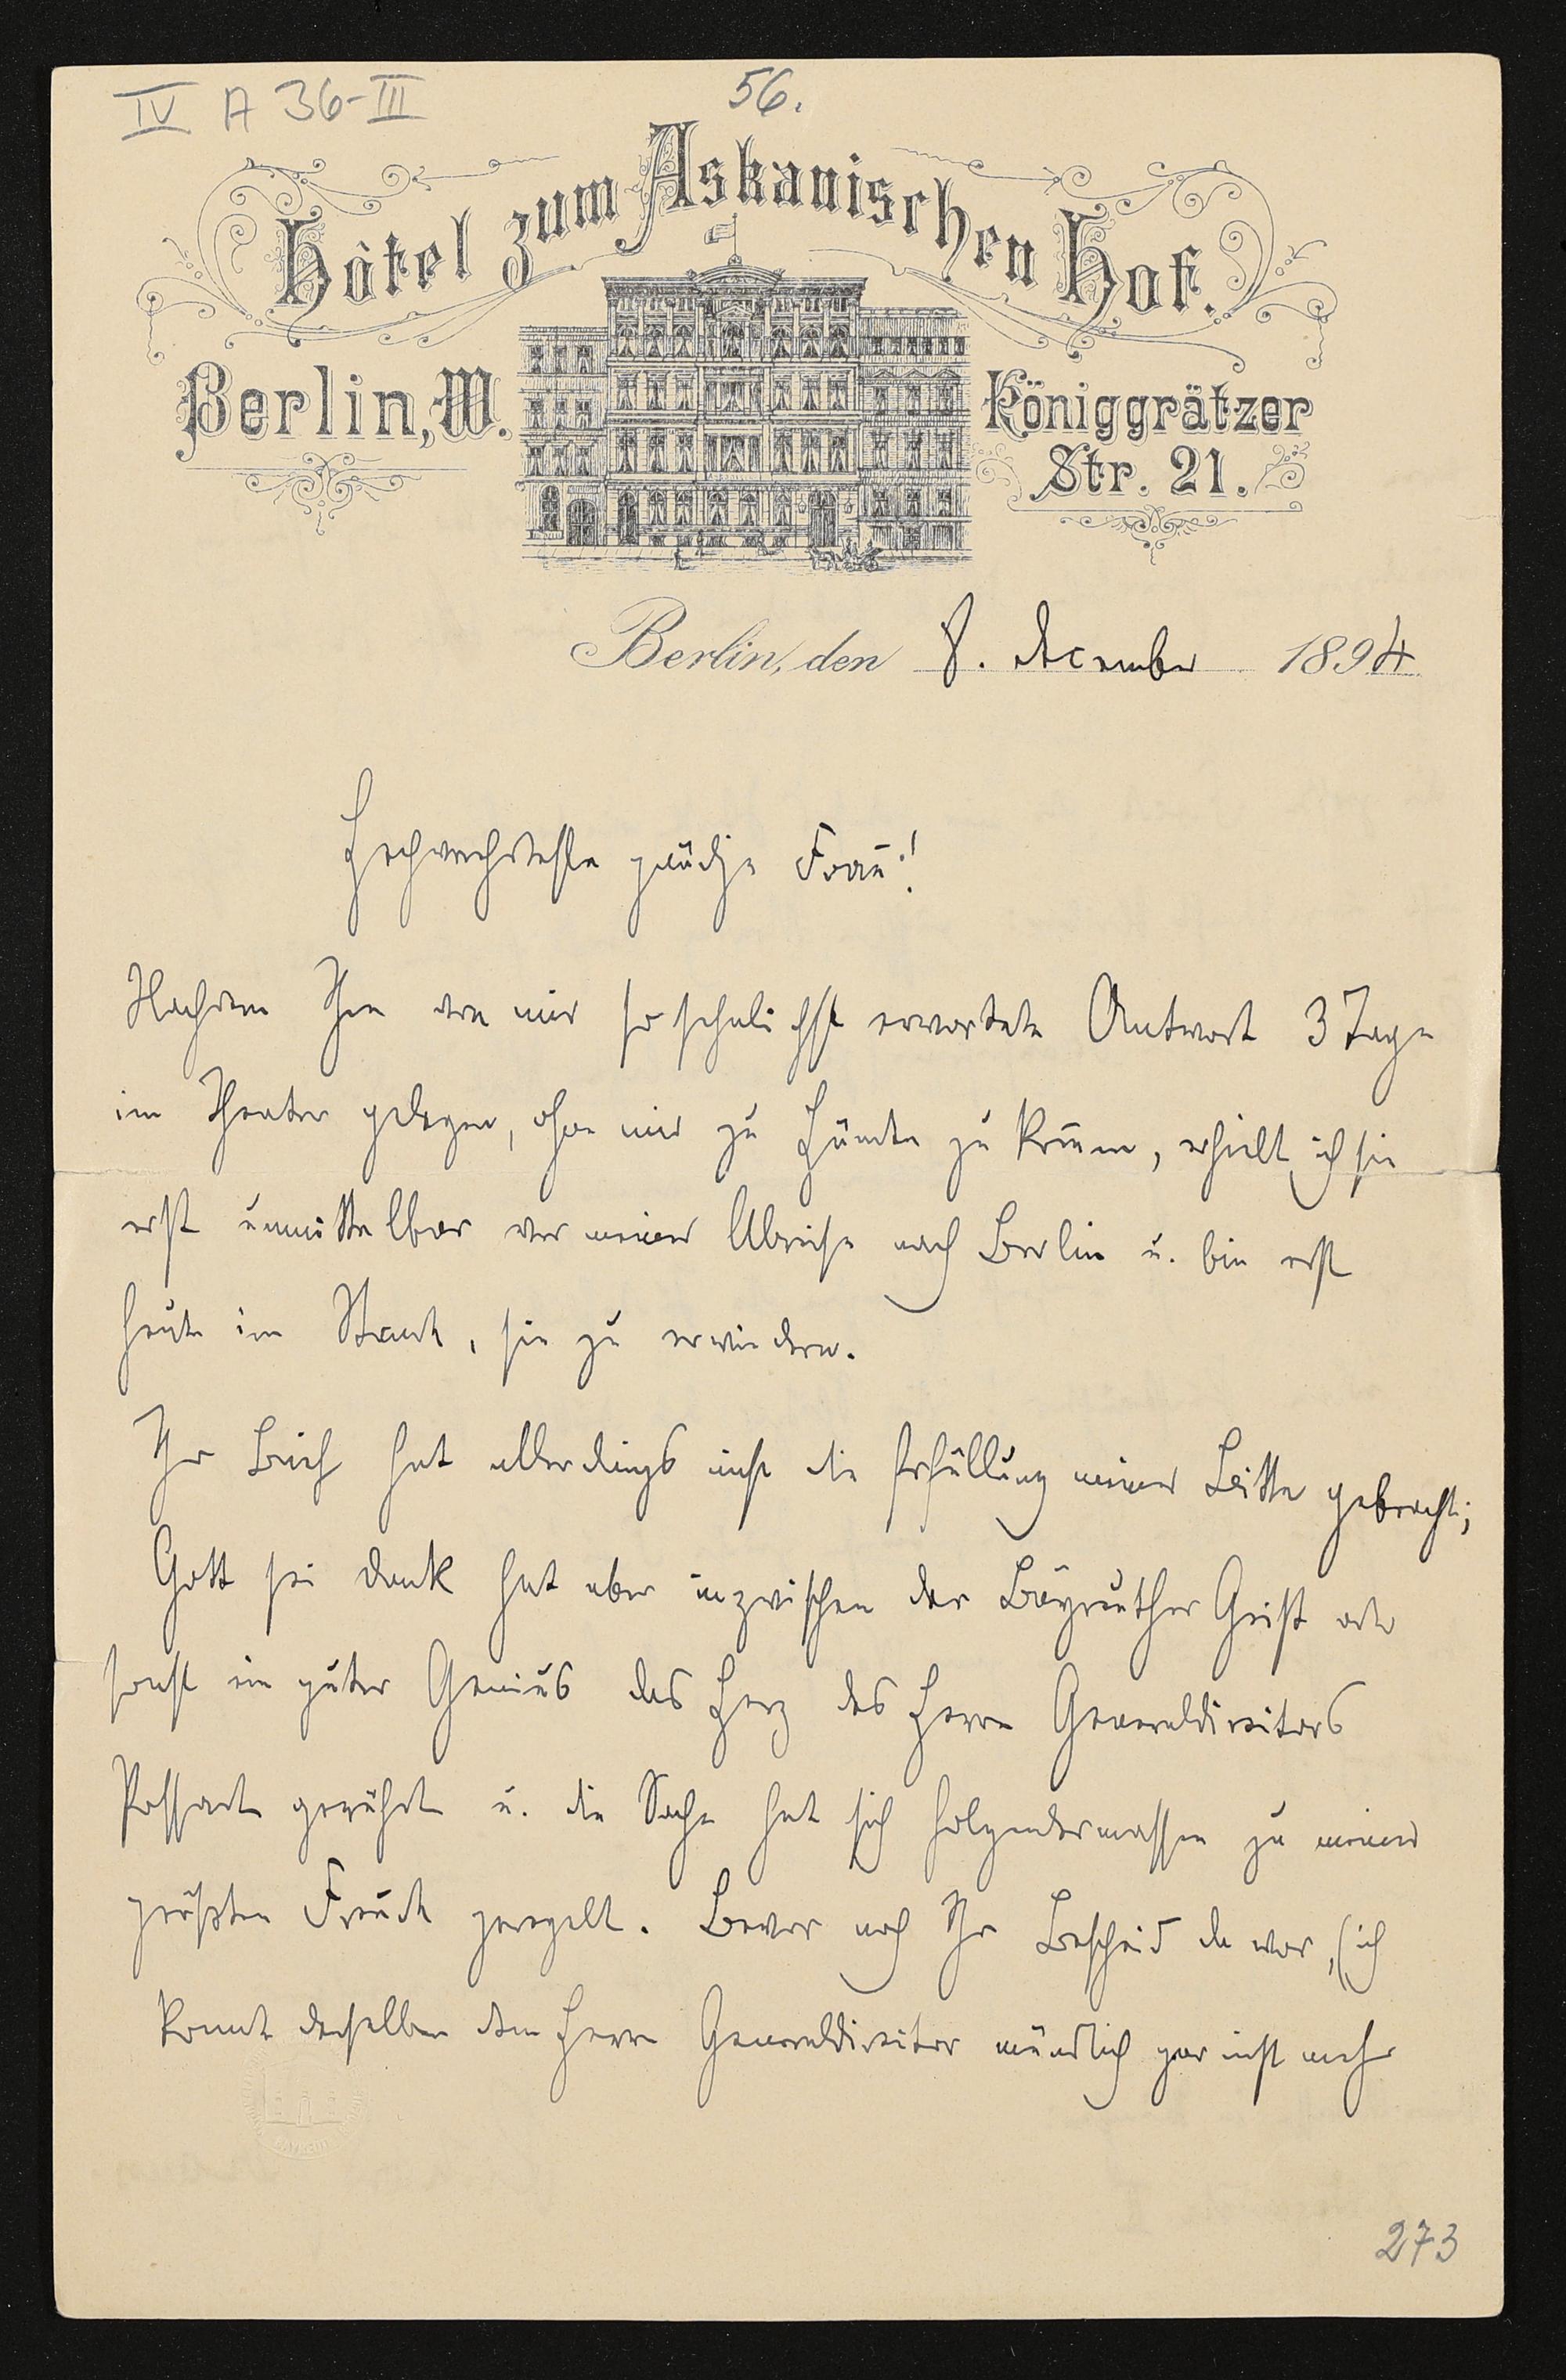 IV A 36-III
56.
Hôtel zum Askanischen Hof.
Berlin, W.
Königgrätzer
Str. 21.
Berlin, den 8. December 1894
Hochverehrteste gnädige Frau!
Nachdem Ihre von mir so sehnlichst erwartete Antwort 3 Tage
im Theater gelegen, ohne mir zu Händen zu kom̄en, erhielt ich sie
erst unmittelbar vor meiner Abreise nach Berlin u. bin erst
heute im Stande, sie zu erwiedern.
Ihr Brief hat allerdings nicht die Erfüllung meiner Bitte gebracht;
Gott sei Dank hat aber inzwischen der Bayreuther Geist oder
sonst ein guter Genius das Herz des Herrn Generaldirektors
Possart gerührt u. die Sache hat sich folgendermassen zu meiner
größten Freude geregelt. Bevor noch Ihr Bescheid da war, (ich
konnte denselben dem Herrn Generaldirektor mündlich gar nicht mehr
273